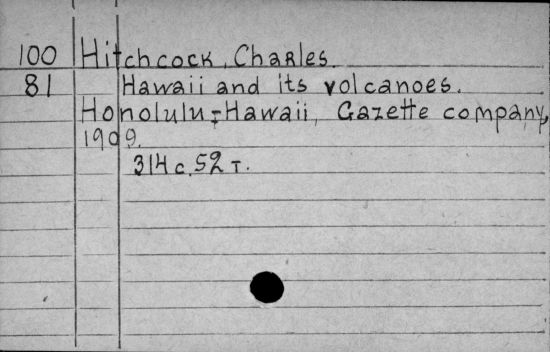 100 Hitchcock, Charles.
81 Hawaii and its volcanoes.
Honolulu-Hawaii, Gazette company,
1909.
314 c. 52 т.